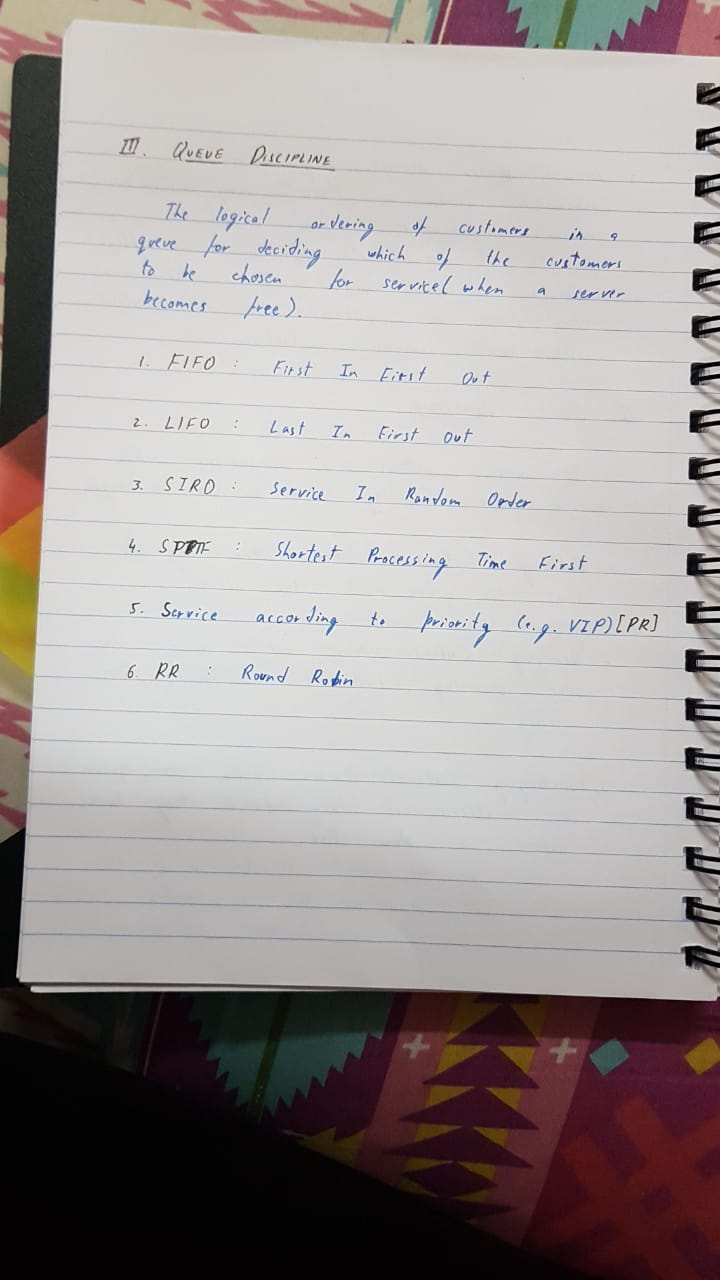 III. QUEUE DISCIPLINE
The logical ordering of customers in a
queue for deciding which of the customers
to be chosen for service(when a server
becomes free).
1. FIFO : First In First Out
2. LIFO : Last In First Out
3. SIRO : Service In Random Order
4. SPTF : Shortest Processing Time First
5. Service according to priority (e.g. VIP)[PR]
6. RR : Round Robin